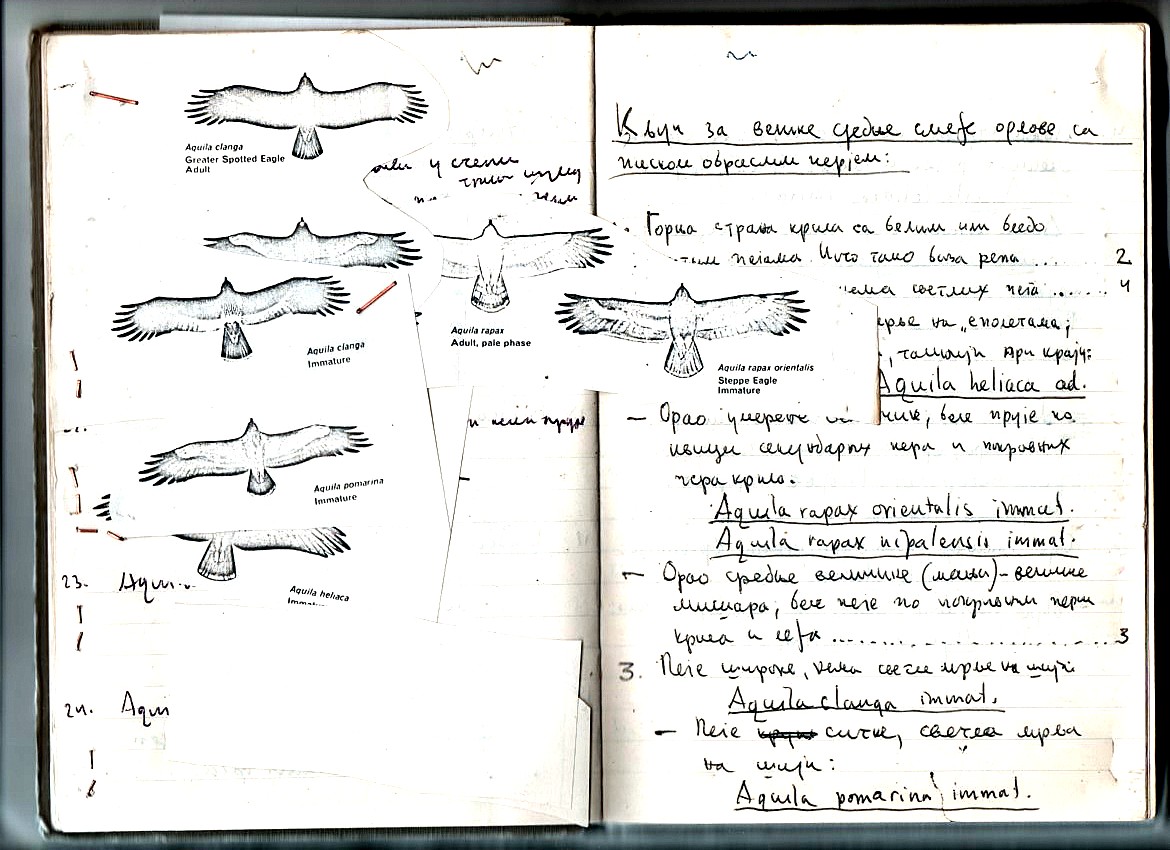 Aquila clanga
Greater Spotted Eagle
Adult
у степи
Aquila clanga
Immature
Aquila rapax
Adult, pale phase
Aquila rapax orientalis
Steppe Eagle
Immature
Aquila pomarina
Immature
Aquila heliaca
23. Aqui
24. Aqui
Кључ за велике средње смеђе орлове са
ниском обраслим перјем:
Горња страна крила са белим или бледо
пегама. Исто тако база репа ... 2
нема светлих пега ...... 4
на „еполетама;
при крају:
Aquila heliaca ad.
– Орао умерене величине, беле пруге на
ивици секундарних пера и покровних
пера крила.
Aquila rapax orientalis immat.
Aquila rapax nipalensis immat.
– Орао средње величине (мањи) – величине
мишара, беле пеге по покровним перима
крила и леђа ................ 3
3. Пеге широке, нема светле мрље на шији
Aquila clanga immat.
– Пеге ситне, светла мрља
на шији:
Aquila pomarina immat.